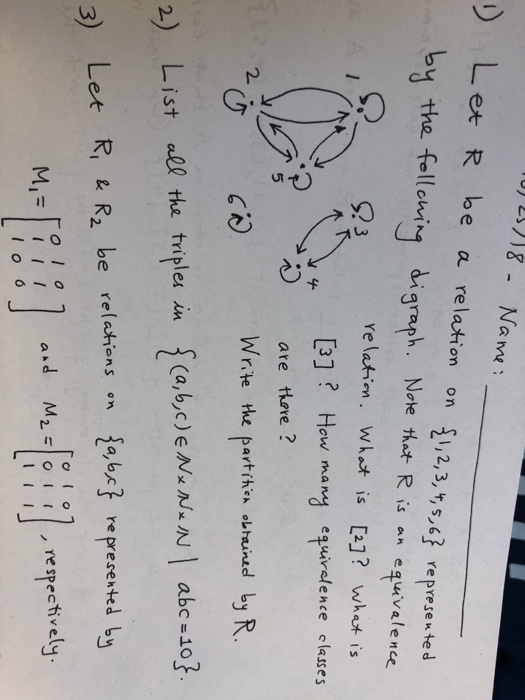 10/25/18 - Name:
1) Let R be a relation on {1,2,3,4,5,6} represented
by the following digraph. Note that R is an equivalence
relation. What is [2]? What is
[3]? How many equivalence classes
are there?
Write the partition obtained by R.
1
2
5
3
4
6
2) List all the triples in {(a,b,c) ∈ N×N×N | abc=10}.
3) Let R₁ & R₂ be relations on {a,b,c} represented by
M₁ = [0 1 0 and M₂ = [0 1 0
1 1 1 0 1 1
1 0 0] 1 1 1], respectively.